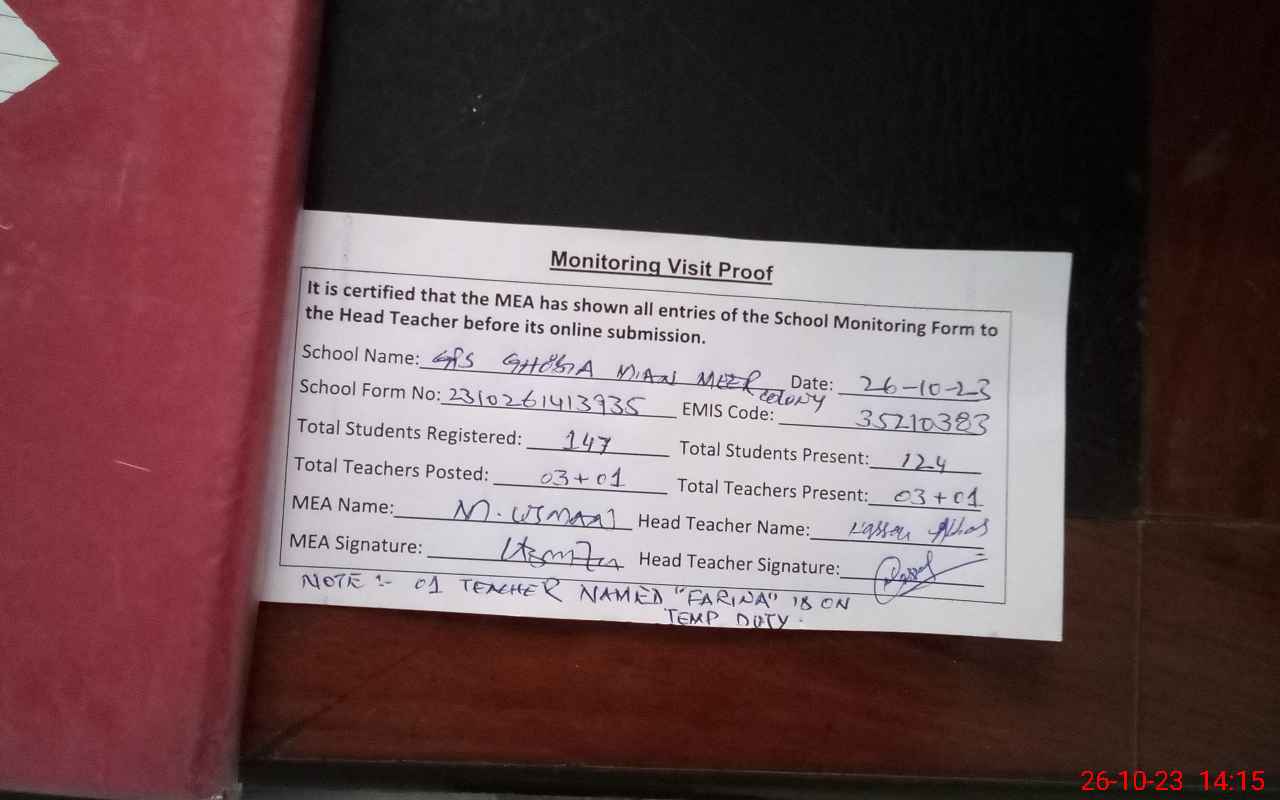 Monitoring Visit Proof
It is certified that the MEA has shown all entries of the School Monitoring Form to
the Head Teacher before its online submission.
School Name: GPS GHOSIA MIAN MEER COLONY Date: 26-10-23
School Form No: 2310261413935 EMIS Code: 35210383
Total Students Registered: 147 Total Students Present: 124
Total Teachers Posted: 03+01 Total Teachers Present: 03+01
MEA Name: M. USMAN Head Teacher Name:
MEA Signature: Head Teacher Signature:
NOTE :- 01 TEACHER NAMED "FARINA" IS ON
TEMP DUTY.
26-10-23 14:15